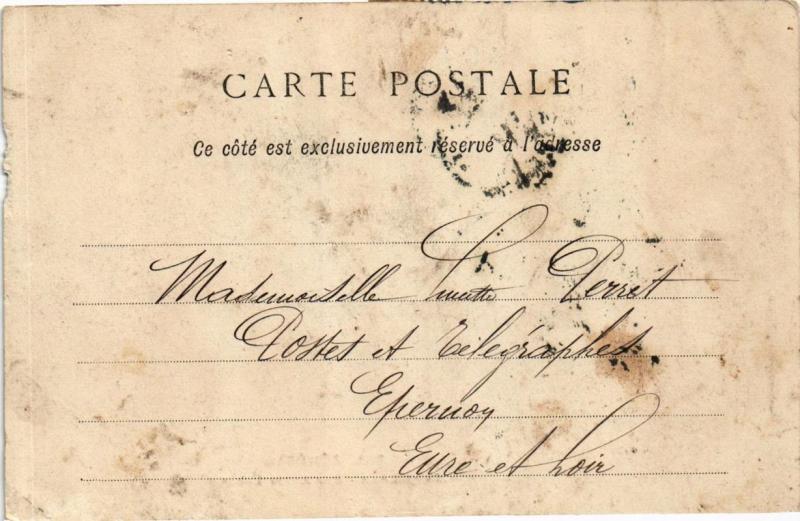 CARTE POSTALE
Ce côté est exclusivement réservé à l'adresse
Mademoiselle Perret
Postes et Télégraphes
Epernon
Eure et Loir